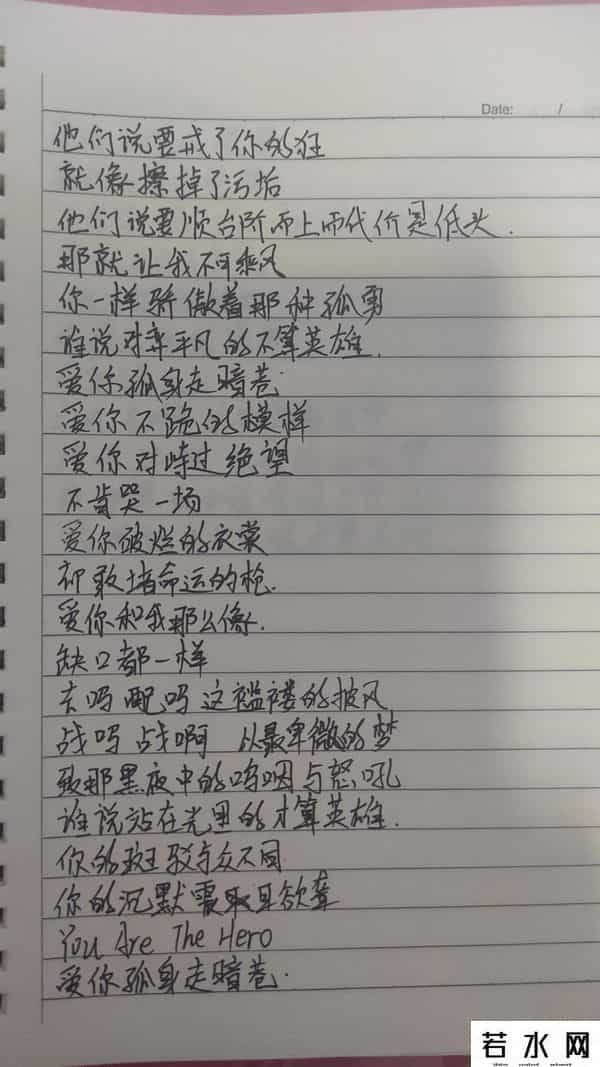 Date: /
他们说要戒了你的狂
就像擦掉了污垢
他们说要顺台阶而上而代价是低头.
那就让我不可乘风
你一样骄傲着那种孤勇
谁说对弈平凡的不算英雄.
爱你孤身走暗巷.
爱你不跪的模样
爱你对峙过绝望
不肯哭一场
爱你破烂的衣裳
却敢堵命运的枪.
爱你和我那么像.
缺口都一样
去吗 配吗 这褴褛的披风
战吗 战啊 以最卑微的梦
致那黑夜中的呜咽与怒吼
谁说站在光里的才算英雄.
你的斑驳与众不同
你的沉默震耳欲聋
You Are The Hero
爱你孤身走暗巷.
若水网